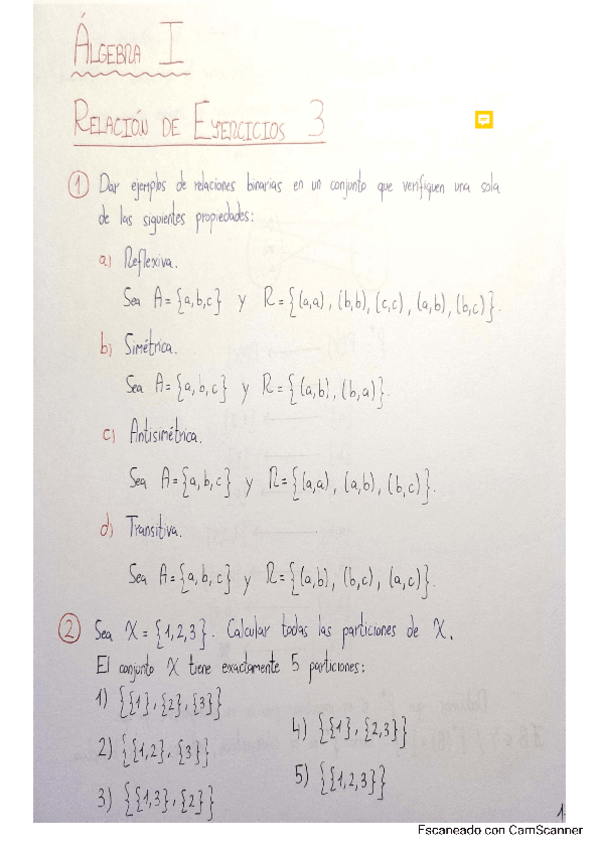 ÁLGEBRA I
RELACIÓN DE EJERCICIOS 3
1 Dar ejemplos de relaciones binarias en un conjunto que verifiquen una sola
de las siguientes propiedades:
a) Reflexiva.
Sea A={a,b,c} y R={(a,a), (b,b), (c,c), (a,b), (b,c)}.
b) Simétrica.
Sea A={a,b,c} y R={(a,b), (b,a)}.
c) Antisimétrica.
Sea A={a,b,c} y R={(a,a), (a,b), (b,c)}.
d) Transitiva.
Sea A={a,b,c} y R={(a,b), (b,c), (a,c)}.
2 Sea X={1,2,3}. Calcular todas las particiones de X.
El conjunto X tiene exactamente 5 particiones:
1) {{1}, {2}, {3}}
2) {{1,2}, {3}}
3) {{1,3}, {2}}
4) {{1}, {2,3}}
5) {{1,2,3}}
1
Escaneado con CamScanner